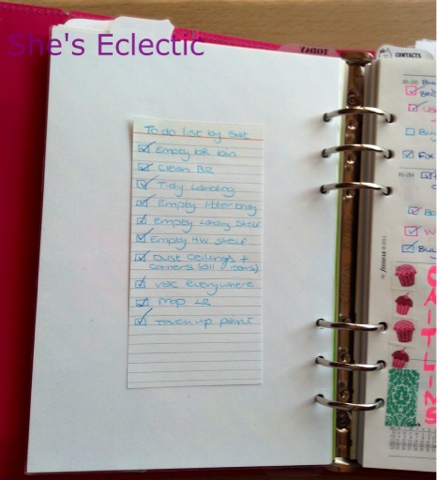 She's Eclectic
TODAY
CONTACTS
To do list by Sat
Empty BR bin
Clean BR
Tidy Landing
Empty litter tray
Empty Landing Shelf
Empty HW Shelf
Dust Ceilings +
corners (all rooms)
vac everywhere
Mop LR
Touch up paint
Fix
CAITLINS